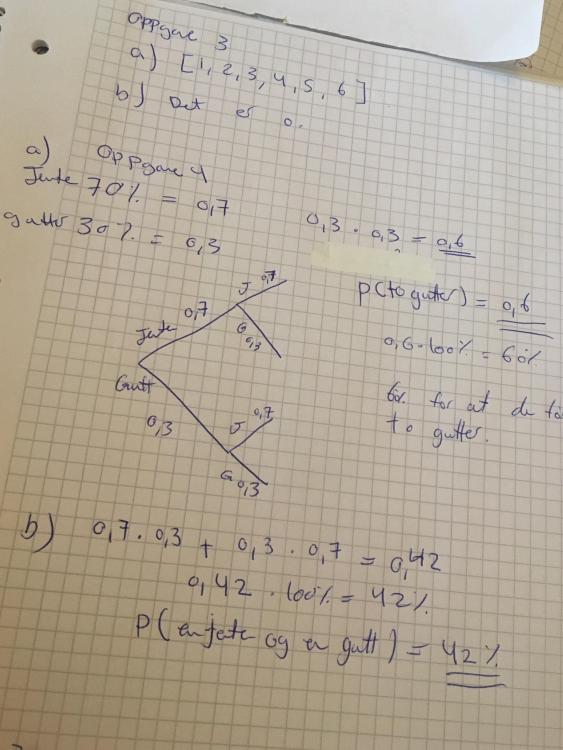 Oppgave 3
a) [1, 2, 3, 4, 5, 6]
b) Det er 0.
a) Oppgave 4
Jente 70% = 0,7
gutter 30% = 0,3
0,3 · 0,3 = 0,6
P(to gutter) = 0,6
0,6 · 100% = 60%
60% for at du
to gutter.
Jente 0,7
J 0,7
G 0,3
Gutt
0,3
J 0,7
G 0,3
b) 0,7 · 0,3 + 0,3 · 0,7 = 0,42
0,42 · 100% = 42%
P(en jente og en gutt) = 42%